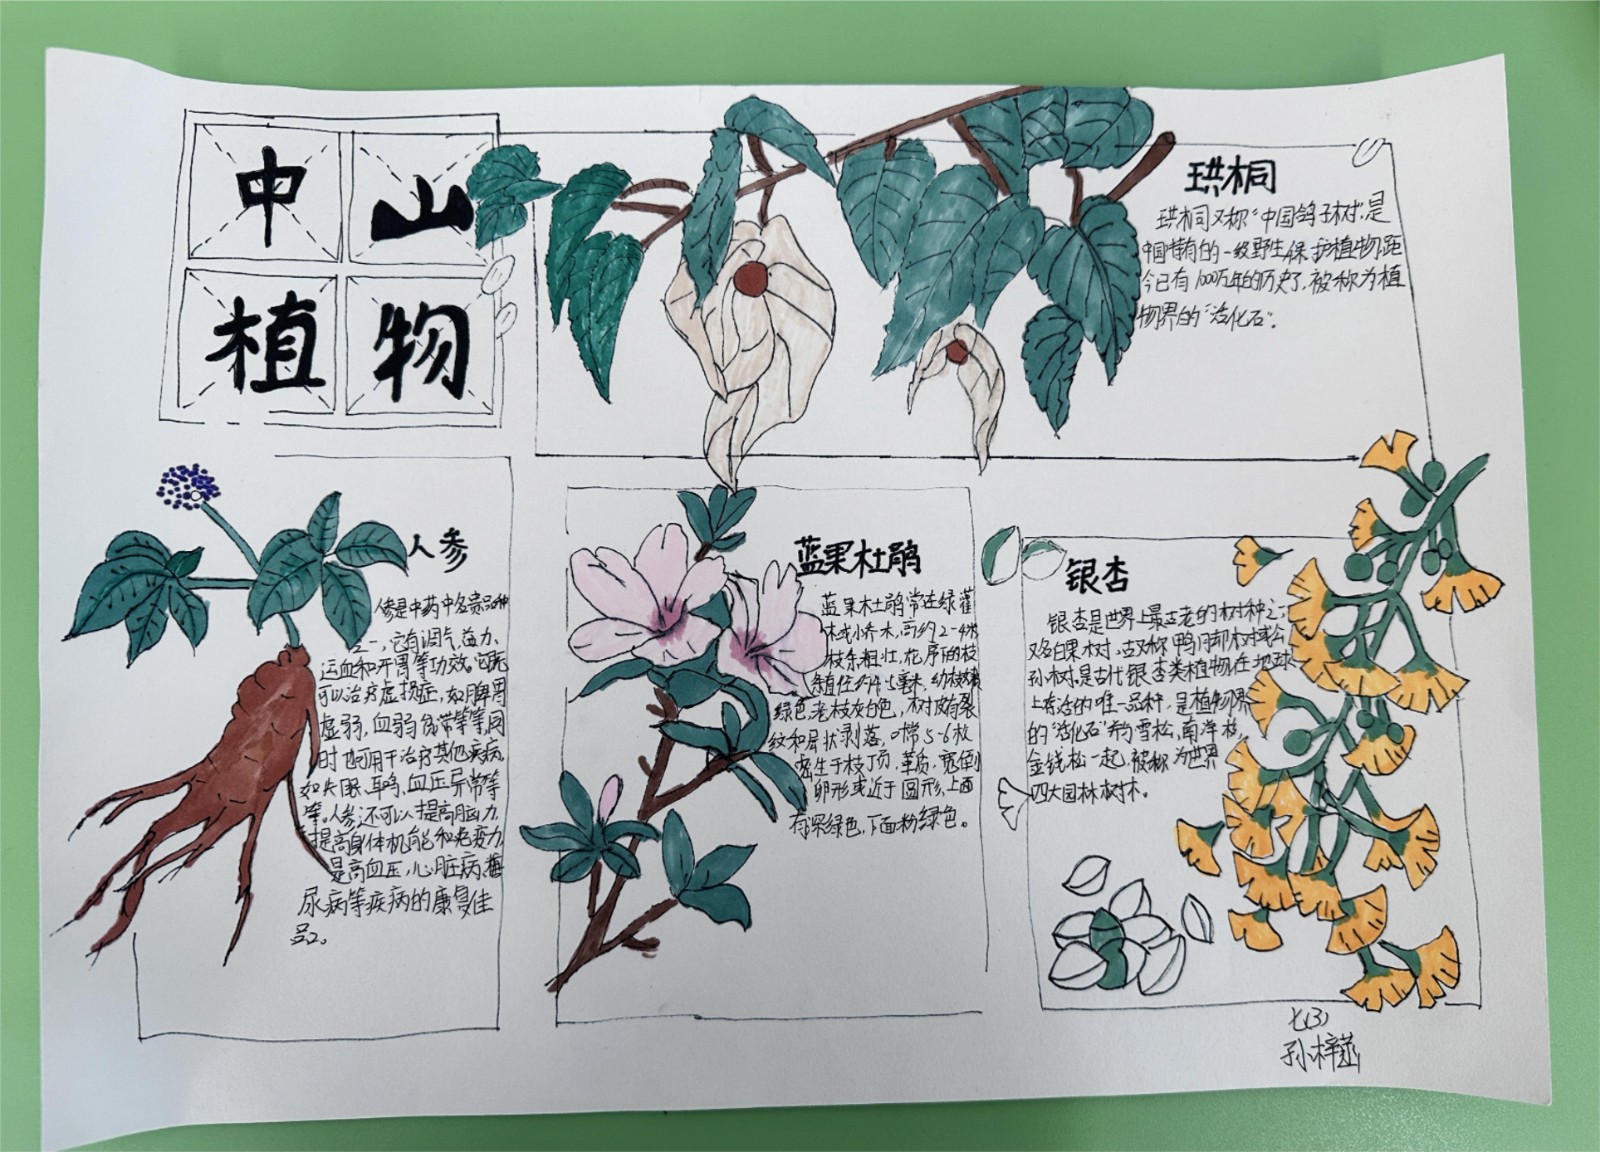 中山
植物
珙桐
珙桐又称“中国鸽子树”,是
中国特有的一级野生保护植物,距
今已有1000万年的历史了,被称为植
物界的“活化石”。
人参
人参是中药中名贵品种
之一,它有调气、益力、
运血和开胃等功效。它既
可以治疗虚损症,如脾胃
虚弱,血弱
等等,同
时也可用于治疗其他疾病,
如失眠、耳鸣,血压异常等
等。人参还可以提高脑力,
提高身体机能和免疫力,
是高血压,心脏病,糖
尿病等疾病的康复佳
品。
蓝果杜鹃
蓝果杜鹃常连绿灌
木或小乔木,高约2-4米
枝条粗壮,花序下的枝
条直径约4-5毫米,幼枝
绿色,老枝灰白色,树皮有裂
纹和层状剥落,叶常5-6枚
密生于枝顶,革质,宽倒
卵形或近于圆形,上面
深绿色,下面粉绿色。
银杏
银杏是世界上最古老的树种之一,
又名白果树,古又称鸭脚树或公
孙树,是古代银杏类植物在地球
上存活的唯一品种,是植物界
的“活化石”并与雪松,南洋杉,
金钱松一起,被称为世界
四大园林树木。
七(3)
孙梓菡